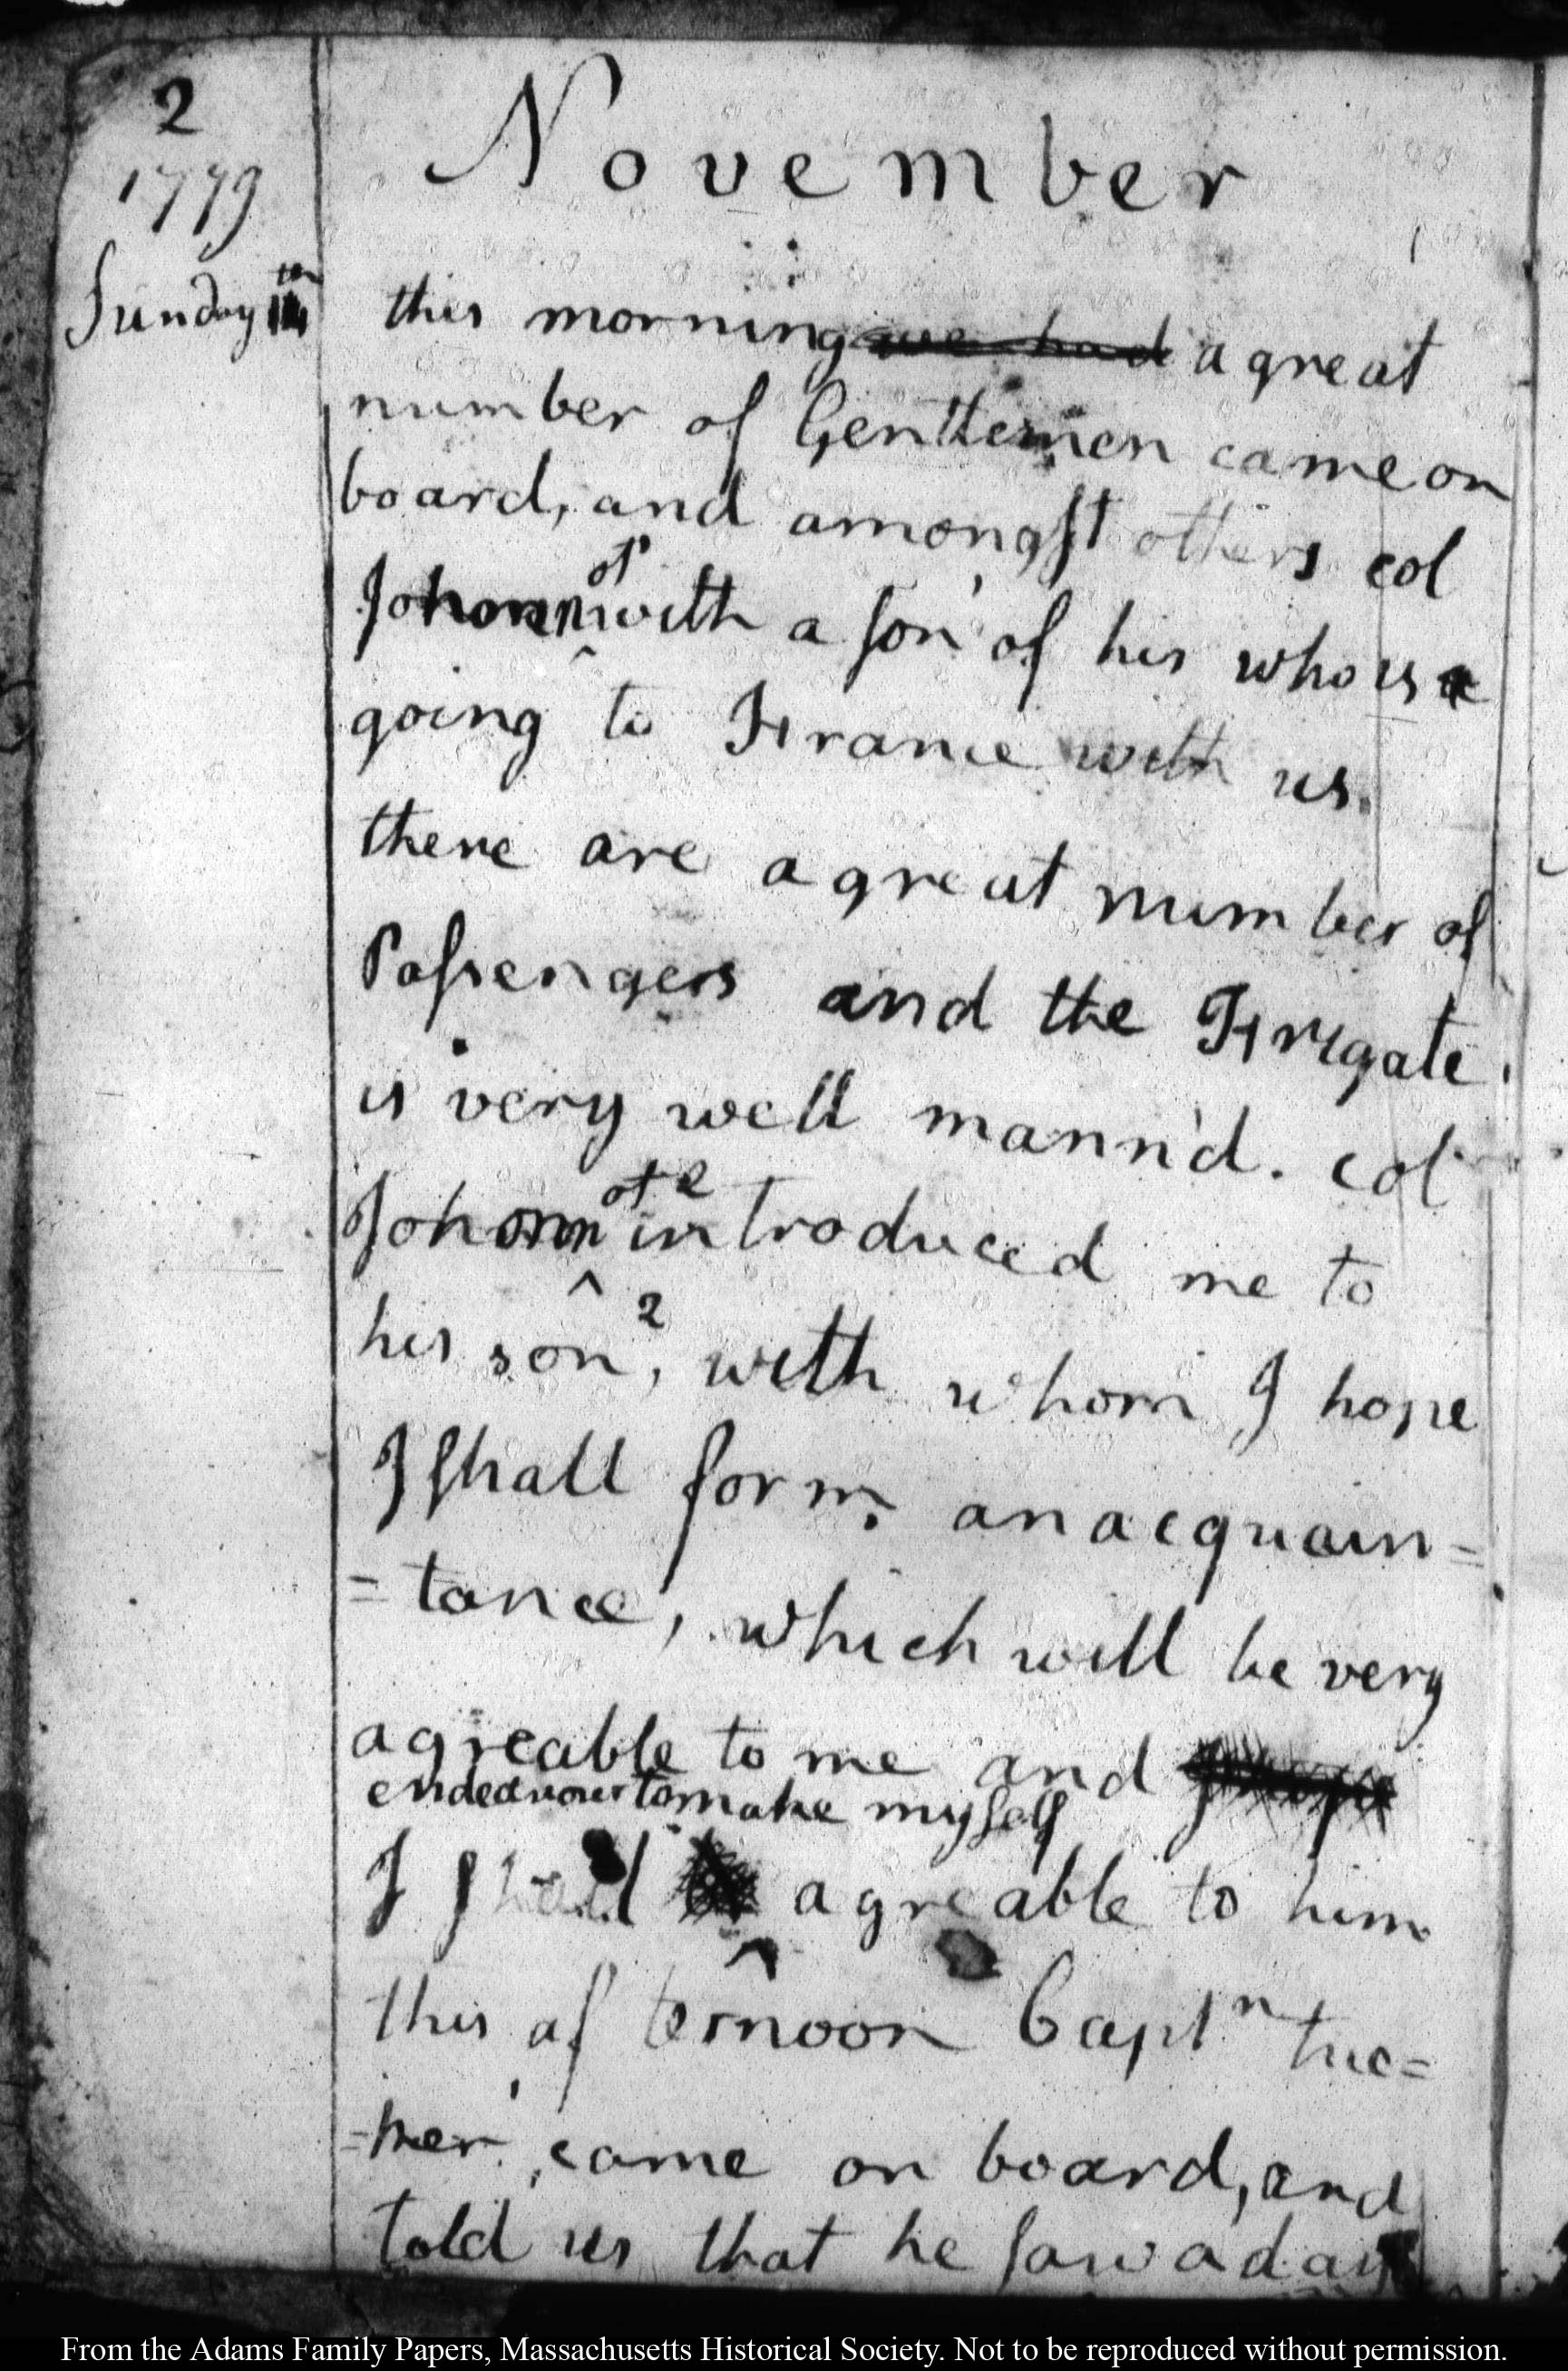 2
1779
November
Sunday 14
this morning we had a great
number of Gentlemen came on
board, and amongst others col
ot
Johonn with a son of his who is a
going to France with us.
there are a great number of
Passengers and the Frigate
is very well mann'd. col
ot 2
Johonn introduced me to
his son 2, with whom I hope
I shall form an acquain=
=tance, which will be very
agreable to me and I hope
endeavour to make myself
I shall be agreable to him
this afternoon Captn tuc=
=ker, came on board, and
told us that he saw a day
From the Adams Family Papers, Massachusetts Historical Society. Not to be reproduced without permission.